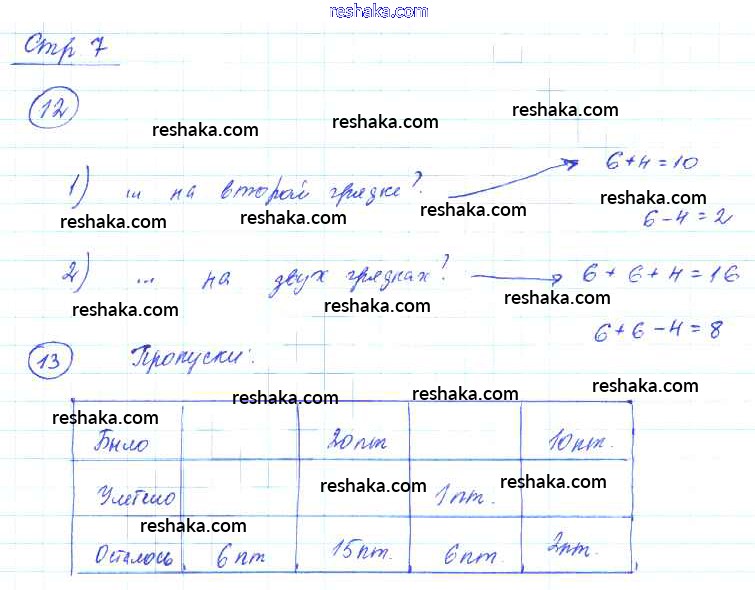 reshaka.com
Стр 7
12
reshaka.com reshaka.com reshaka.com
1) ... на второй грядке? 6+4=10
reshaka.com reshaka.com reshaka.com reshaka.com
6-4=2
2) ... на двух грядках? 6+6+4=16
reshaka.com reshaka.com reshaka.com
6+6-4=8
13 Пропуски:
reshaka.com reshaka.com reshaka.com reshaka.com
Было 20пт 10пт.
Улетело 1пт.
reshaka.com reshaka.com reshaka.com
Осталось 6пт 15пт. 6пт. 2пт.